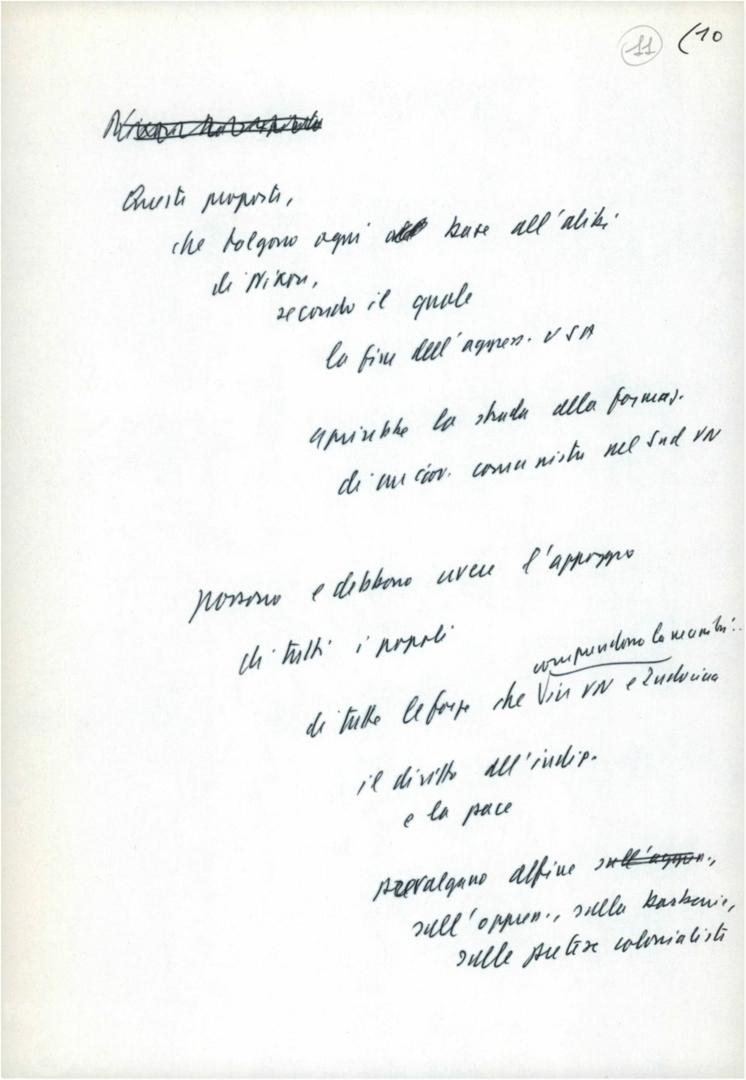 11 (10
Queste proposte,
che tolgono ogni base all'alibi
di Nixon,
secondo il quale
la fine dell'aggress. USA
aprirebbe la strada alla formaz.
di un gov. comunista nel Sud VN
possono e debbono avere l'appoggio
di tutti i popoli
comprendono la necessità
di tutte le forze che in VN e Indocina
il diritto all'indip.
e la pace
prevalgano alfine sull'aggress.,
sull'oppress., sulla barbarie,
sulle pretese colonialiste